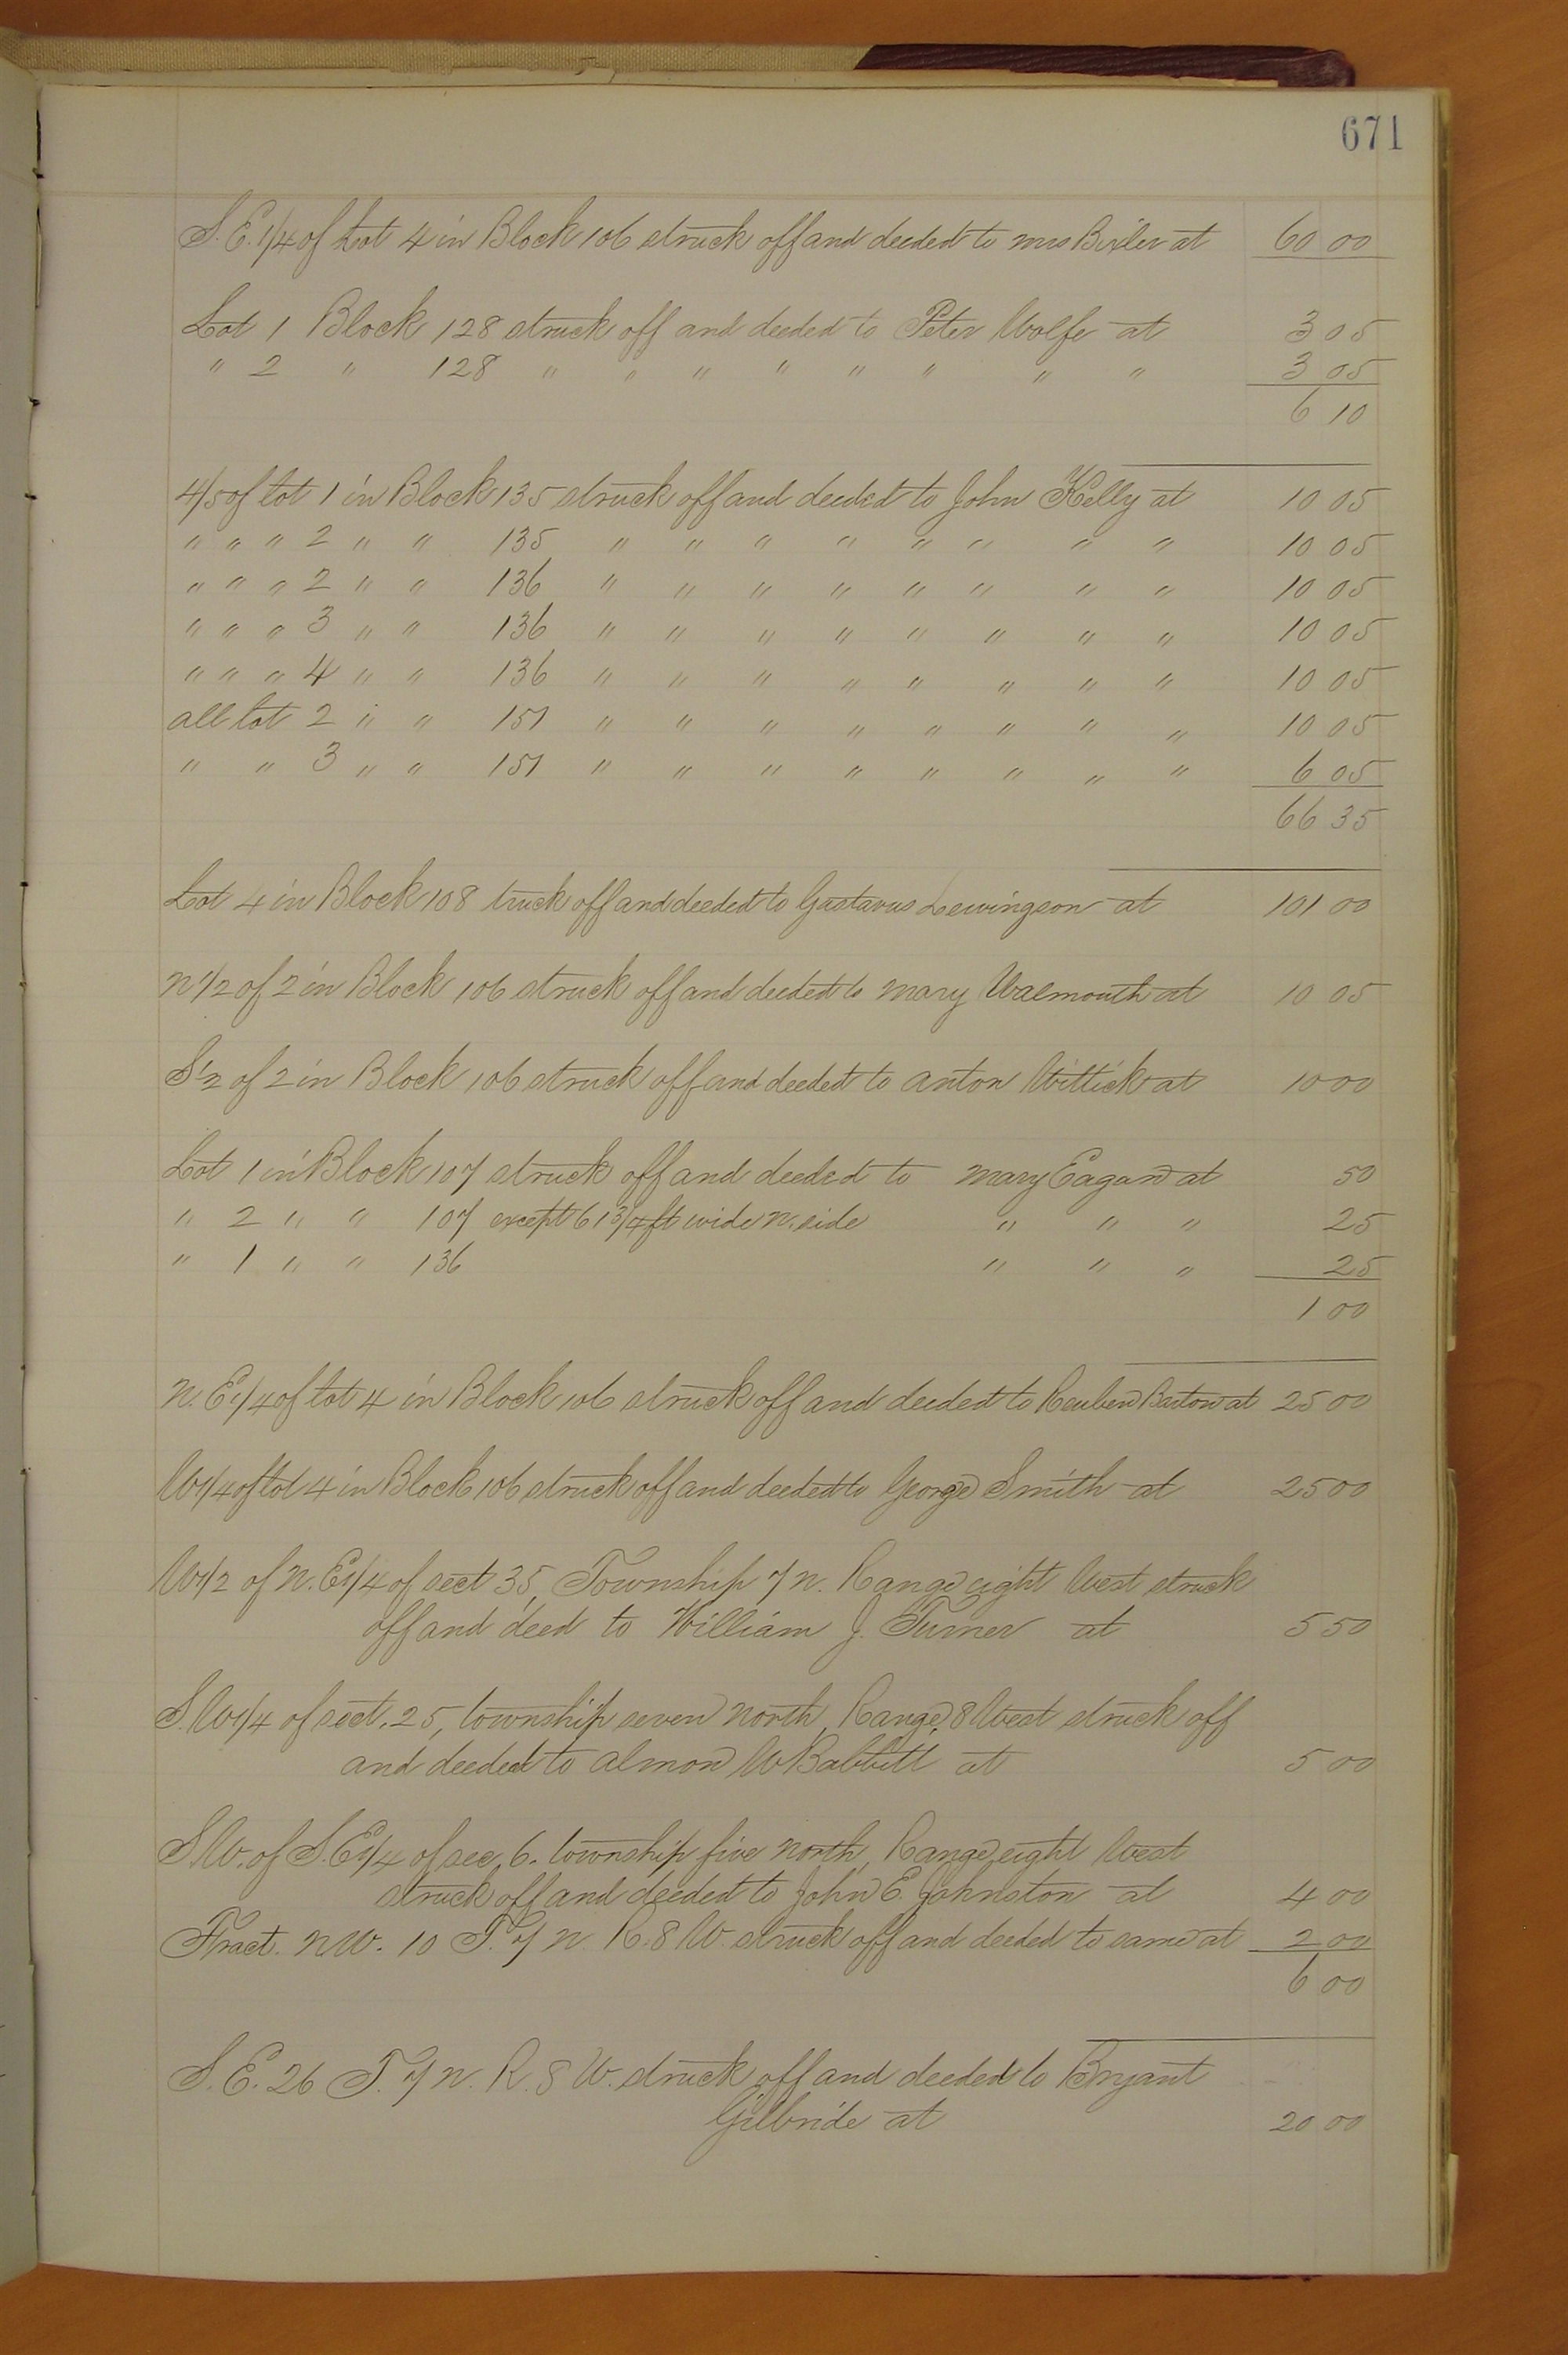 671
S. E. 1/4 of Lot 4 in Block 106 struck off and deeded to Mrs Bixler at 60 00
Lot 1 Block 128 struck off and deeded to Peter Wolfe at 3 05
" 2 " 128 " " " " " " " " 3 05
6 10
4/5 of lot 1 in Block 135 struck off and deeded to John Kelly at 10 05
" " " 2 " " 135 " " " " " " " " 10 05
" " " 2 " " 136 " " " " " " " " 10 05
" " " 3 " " 136 " " " " " " " " 10 05
" " " 4 " " 136 " " " " " " " " 10 05
all lot 2 " " 151 " " " " " " " " 10 05
" " 3 " " 151 " " " " " " " " 6 05
66 35
Lot 4 in Block 108 truck off and deeded to Gustavus Lewingson at 101 00
N 1/2 of 2 in Block 106 struck off and deeded to Mary Walmouth at 10 05
S 1/2 of 2 in Block 106 struck off and deeded to Anton Wittick at 10 00
Lot 1 in Block 107 struck off and deeded to Mary Eagan at 50
" 2 " " 107 except 61 3/4 ft wide N. side " " " 25
" 1 " " 136 " " " 25
1 00
N. E 1/4 of lot 4 in Block 106 struck off and deeded to Reuben Barton at 25 00
W 1/4 of lot 4 in Block 106 struck off and deeded to George Smith at 25 00
W 1/2 of N. E 1/4 of sect 35, Township 7 N. Range eight West struck
off and deed to William J. Turner at 5 50
S. W 1/4 of sect. 25, township seven North, Range 8 West struck off
and deeded to Almon W Babbitt at 5 00
S. W. of S. E 1/4 of sec. 6. township five North, Range eight West
struck off and deeded to John E. Johnston at 4 00
Fract. N W. 10 T. 7 N R. 8 W. struck off and deeded to same at 2 00
6 00
S. E. 26 T. 7 N. R. 8 W. struck off and deeded to Bryant
Gilbride at 20 00